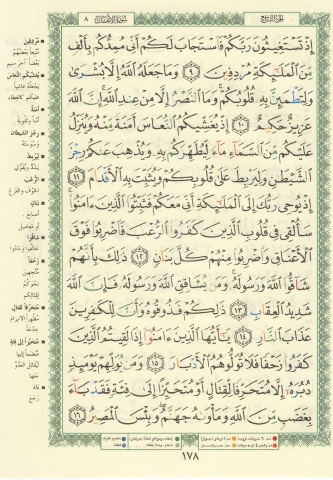 الجزء التاسع
سورة الأنفال ٨
إِذْ تَسْتَغِيثُونَ رَبَّكُمْ فَاسْتَجَابَ لَكُمْ أَنِّي مُمِدُّكُم بِأَلْفٍ
مِّنَ الْمَلَائِكَةِ مُرْدِفِينَ ٩ وَمَا جَعَلَهُ اللَّهُ إِلَّا بُشْرَىٰ
وَلِتَطْمَئِنَّ بِهِ قُلُوبُكُمْ وَمَا النَّصْرُ إِلَّا مِنْ عِندِ اللَّهِ إِنَّ اللَّهَ
عَزِيزٌ حَكِيمٌ ١٠ إِذْ يُغَشِّيكُمُ النُّعَاسَ أَمَنَةً مِّنْهُ وَيُنَزِّلُ
عَلَيْكُم مِّنَ السَّمَاءِ مَاءً لِّيُطَهِّرَكُم بِهِ وَيُذْهِبَ عَنكُمْ رِجْزَ
الشَّيْطَانِ وَلِيَرْبِطَ عَلَىٰ قُلُوبِكُمْ وَيُثَبِّتَ بِهِ الْأَقْدَامَ ١١
إِذْ يُوحِي رَبُّكَ إِلَى الْمَلَائِكَةِ أَنِّي مَعَكُمْ فَثَبِّتُوا الَّذِينَ ءَامَنُوا
سَأُلْقِي فِي قُلُوبِ الَّذِينَ كَفَرُوا الرُّعْبَ فَاضْرِبُوا فَوْقَ
الْأَعْنَاقِ وَاضْرِبُوا مِنْهُمْ كُلَّ بَنَانٍ ١٢ ذَٰلِكَ بِأَنَّهُمْ
شَاقُّوا اللَّهَ وَرَسُولَهُ وَمَن يُشَاقِقِ اللَّهَ وَرَسُولَهُ فَإِنَّ اللَّهَ
شَدِيدُ الْعِقَابِ ١٣ ذَٰلِكُمْ فَذُوقُوهُ وَأَنَّ لِلْكَافِرِينَ
عَذَابَ النَّارِ ١٤ يَا أَيُّهَا الَّذِينَ ءَامَنُوا إِذَا لَقِيتُمُ الَّذِينَ
كَفَرُوا زَحْفًا فَلَا تُوَلُّوهُمُ الْأَدْبَارَ ١٥ وَمَن يُوَلِّهِمْ يَوْمَئِذٍ
دُبُرَهُ إِلَّا مُتَحَرِّفًا لِّقِتَالٍ أَوْ مُتَحَيِّزًا إِلَىٰ فِئَةٍ فَقَدْ بَاءَ
بِغَضَبٍ مِّنَ اللَّهِ وَمَأْوَاهُ جَهَنَّمُ وَبِئْسَ الْمَصِيرُ ١٦
١٧٨
مردفين
يغشيكم النعاس
أمنة
رجز الشيطان
ليربط
الرعب
بنان
شاقوا
زحفا
متحرفا لقتال
متحيزا إلى فئة
باء
رجع